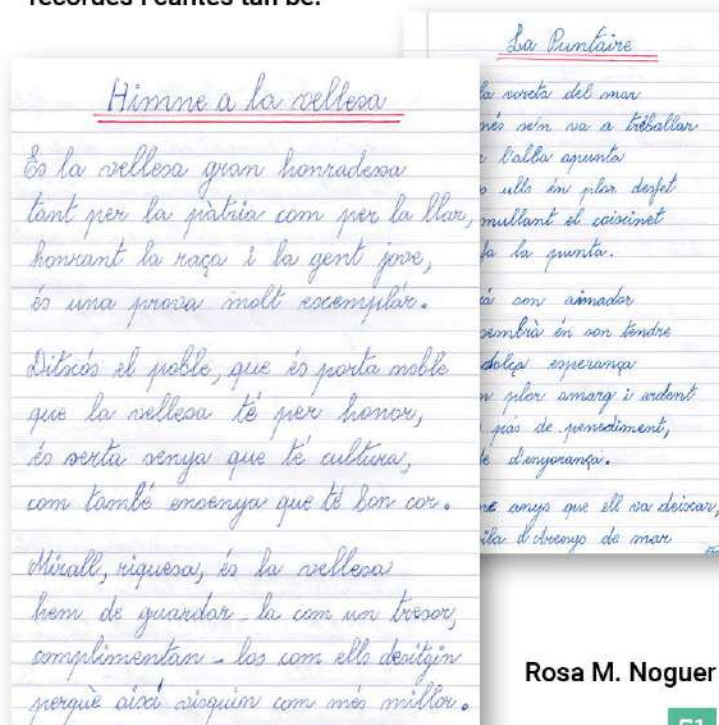 recordes i cantes tan bé.
Himne a la vellesa
És la vellesa gran honradesa
tant per la pàtria com per la llar,
honrant la raça i la gent jove,
és una prova molt exemplar.
Ditxós el poble, que és porta noble
que la vellesa té per honor,
és serta senya que té cultura,
com també ensenya que té bon cor.
Mirall, riquesa, és la vellesa
hem de guardar-la com un tresor,
complimentan-los com ells desitgin
perquè aixi visquin com més millor.
La Puntaire
la voreta del mar
més se'n va a treballar
l'alba apunta
ulls én plor desfet
mullant el coixinet
fa la punta.
son aimador
sembrà én son tendre
dolça esperança
plor amarg i ardent
pás de penediment,
d'enyorança.
anys que ell va deixar,
d'Arenys de mar
Rosa M. Noguer
51